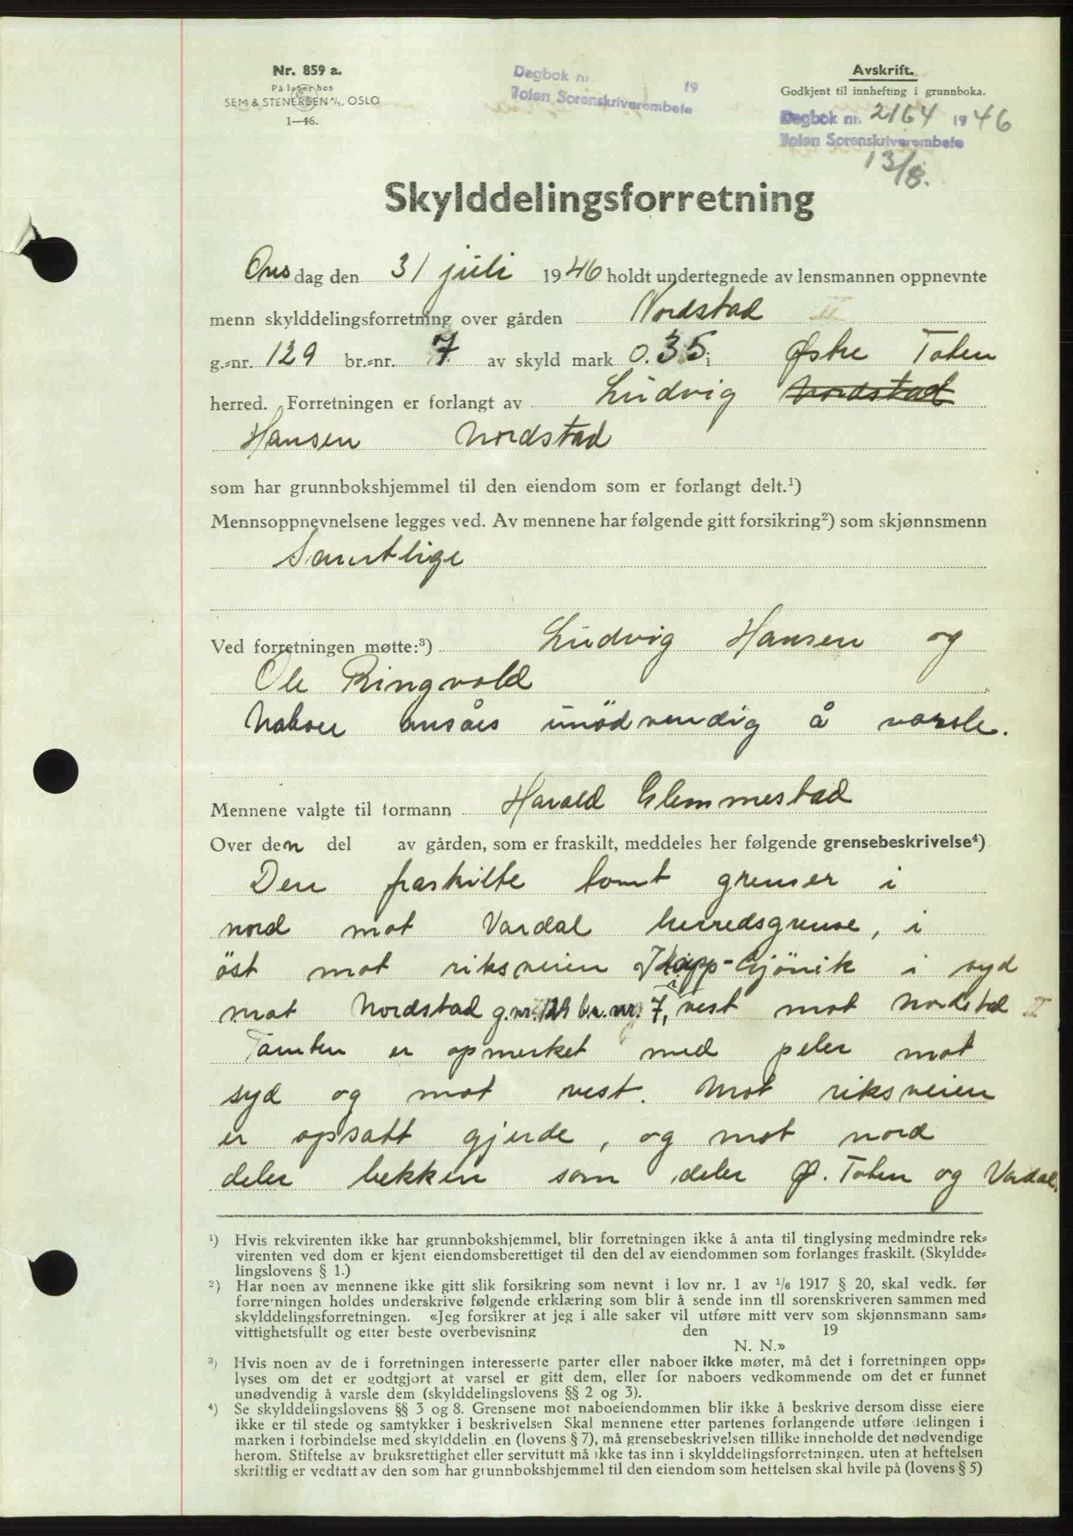 Nr. 859 a.
På lager hos
SEM & STENERSEN A/S, OSLO
1—46.
Dagbok nr. 19
Toten Sorenskriverembete
Avskrift.
Godkjent til innhefting i grunnboka.
Dagbok nr. 2164 1946
Toten Sorenskriverembete
13/8.
Skylddelingsforretning
Onsdag den 31 juli 1946 holdt undertegnede av lensmannen oppnevnte
menn skylddelingsforretning over gården Nordstad
g.-nr. 129 br.-nr. 7 av skyld mark 0.35 i Østre Toten
herred. Forretningen er forlangt av Ludvig Nordstad
Hansen Nordstad
som har grunnbokshjemmel til den eiendom som er forlangt delt.¹)
Mennsoppnevnelsene legges ved. Av mennene har følgende gitt forsikring²) som skjønnsmenn
Samtlige
Ved forretningen møtte:³) Ludvig Hansen og
Ole Ringvold
Naboer ansåes unödvendig å varsle.
Mennene valgte til formann Harald Glemmestad
Over den del av gården, som er fraskilt, meddeles her følgende grensebeskrivelse⁴)
Den fraskilte tomt grenser i
nord mot Vardal herredsgrense, i
öst mot riksveien Kapp-Gjövik i syd
mot Nordstad g.nr. 129 br.nr. 7, i vest mot Nordstad II
Tomten er opmerket med peler mot
syd og mot vest. Mot riksveien
er opsatt gjerde, og mot nord
deler bekken som deler Ø. Toten og Vardal.
¹) Hvis rekvirenten ikke har grunnbokshjemmel, blir forretningen ikke å anta til tinglysing medmindre rek-
virenten ved dom er kjent eiendomsberettiget til den del av eiendommen som forlanges fraskilt. (Skyldde-
lingslovens § 1.)
²) Har noen av mennene ikke gitt slik forsikring som nevnt i lov nr. 1 av 1/6 1917 § 20, skal vedk. før
forretningen holdes underskrive følgende erklæring som blir å sende inn til sorenskriveren sammen med
skylddelingsforretningen. «Jeg forsikrer at jeg i alle saker vil utføre mitt verv som skjønnsmann sam-
vittighetsfullt og etter beste overbevisning den 19
N. N.»
³) Hvis noen av de i forretningen interesserte parter eller naboer ikke møter, må det i forretningen opp-
lyses om det er godtgjort at varsel er gitt dem, eller for naboers vedkommende om det er funnet
unødvendig å varsle dem (skylddelingslovens §§ 2 og 3).
⁴) Se skylddelingslovens §§ 3 og 8. Grensene mot naboeiendommen blir ikke å beskrive dersom disse eiere
ikke er til stede og samtykker i beskrivelsen Skal mennene etter partenes forlangende utføre delingen i
marken i forbindelse med skylddelingen (lovens § 7), må grensebeskrivelsen tillike inneholde det nødvendige
herom. Stiftelse av bruksrettighet eller servitutt må ikke tas inn i skylddelingsforretningen, uten at heftelsen
skriftlig er vedtatt av den som har grunnbokshjemmel til den eiendom som heftelsen skal hvile på (lovens § 5)